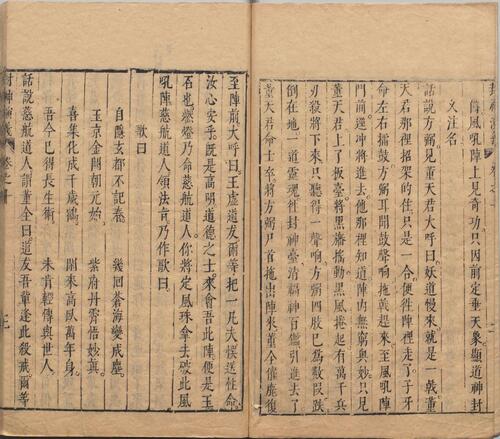 傳風吼陣上見奇功只因前定垂天象顯道神封
又注名
話說方弼見董天君大呼曰妖道慢來就是一戟董
天君那裡招架的住只是一合便徃陣裡走了子牙
命左右擂鼓方弼耳聞鼓聲响拖戟趕來至風吼陣
門前逕冲將進去他那裡知道陣內無窮奥妙只見
董天君上了板臺將黑旛搖動黑風捲起有萬千兵
刃殺將下來只聽得一聲响方弼四肢已為數段跌
倒在地一道靈魂徃封神臺清福神百鑑引進去了
董天君命士卒將方弼尸首拖出陣來董全催鹿復
至陣前大呼曰玉虛道友爾等把一凡夫悞送性命
汝心安乎既是高明道德之士來會吾此陣便見玉
石也燃燈乃命慈航道人你將定風珠拿去破此風
吼陣慈航道人領法旨乃作歌曰
歌曰
自隱玄都不記春 幾回蒼海變成塵
玉京金闕朝元始 紫府丹霄悟妙真
喜集化成千歲鶴 閒來高臥萬年身
吾今已得長生術 未肯輕傳與世人
話說慈航道人謂董全曰道友吾輩逢此殺戒爾等
封神演義 卷之十